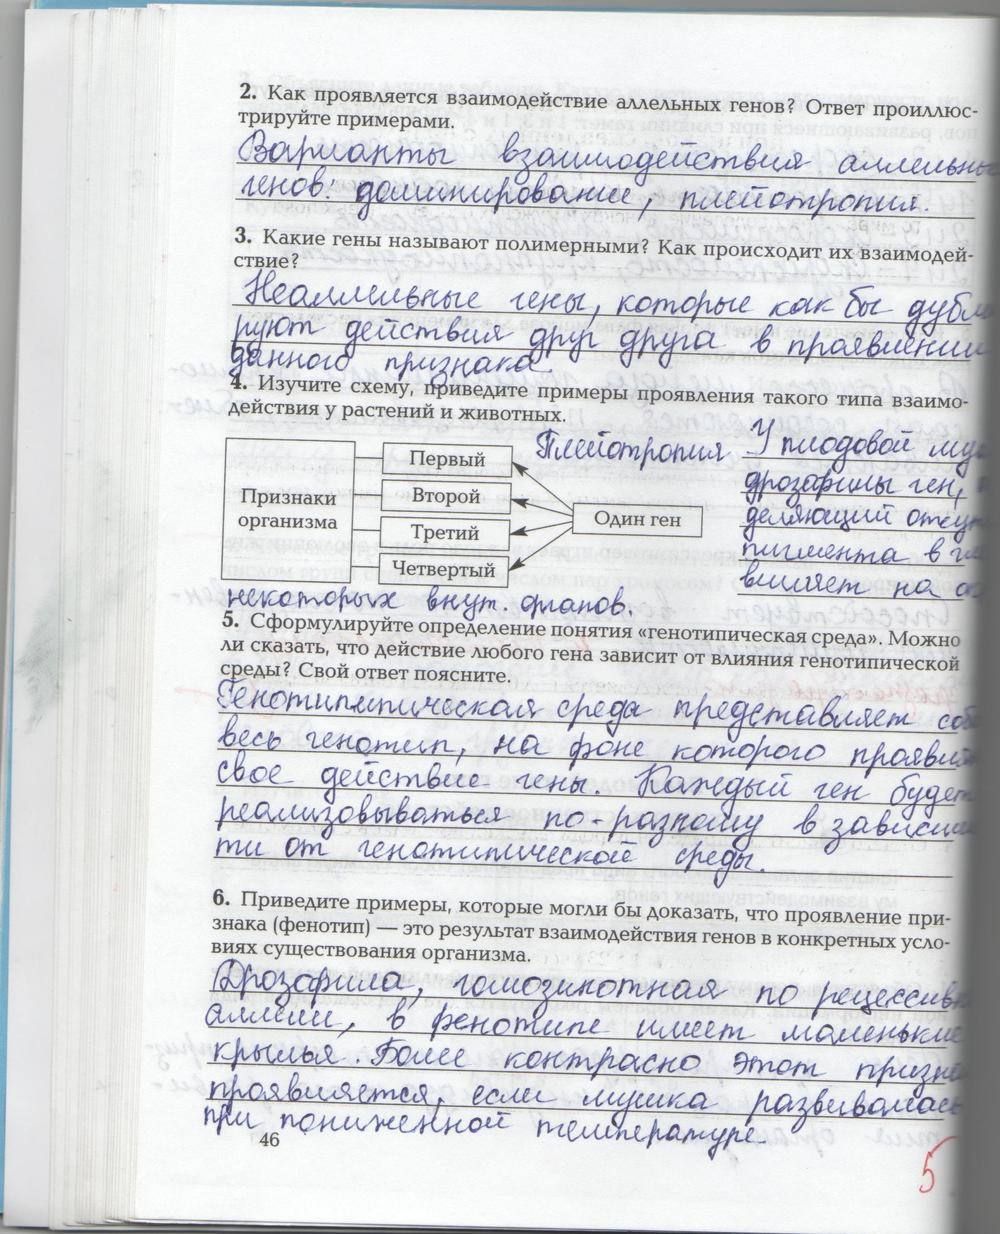 2. Как проявляется взаимодействие аллельных генов? Ответ проиллюс-
трируйте примерами.
Варианты взаимодействия аллельны
генов: доминирование, плейотропия.
3. Какие гены называют полимерными? Как происходит их взаимодей-
ствие?
Неаллельные гены, которые как бы дубли
руют действия друг друга в проявлении
данного признака.
4. Изучите схему, приведите примеры проявления такого типа взаимо-
действия у растений и животных.
Плейотропия
Признаки
организма
Первый
Второй
Третий
Четвертый
Один ген
У плодовой му
дрозофилы ген,
деляющий отсут
пигмента в
влияет на
некоторых внут. органов.
5. Сформулируйте определение понятия «генотипическая среда». Можно
ли сказать, что действие любого гена зависит от влияния генотипической
среды? Свой ответ поясните.
Генотипитическая среда представляет соб
весь генотип, на фоне которого прояви
свое действие гены. Каждый ген будет
реализовываться по-разному в зависим
ти от генотипической среды.
6. Приведите примеры, которые могли бы доказать, что проявление при-
знака (фенотип) — это результат взаимодействия генов в конкретных усло-
виях существования организма.
Дрозофила, гомозиготная по рецессивн
аллели, в фенотипе имеет маленькие
крылья. Более контрасно этот призна
проявляется, если мушка развивалась
при пониженной температуре.
46
5